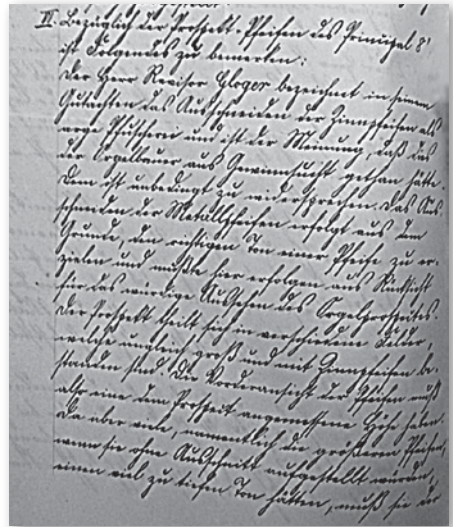 IV. Bezüglich der Prospekt-Pfeifen des Prinzipal 8'
ist Folgendes zu bemerken:
Der Herr Revisor Gloger bezeichnet in seinem
Gutachten das Aufschneiden der Zinnpfeifen als
arge Pfuscherei und ist der Meinung, daß das
der Orgelbauer aus Gewinnsucht gethan hätte.
Dem ist unbedingt zu widersprechen. Das Auf-
schneiden der Metallpfeifen erfolgt aus dem
Grunde, den richtigen Ton einer Pfeife zu er-
zielen und mußte hier erfolgen aus Rücksicht
für das würdige Aussehen des Orgelprospektes.
Der Prospekt theilt sich in verschiedene Felder,
welche ungleich groß und mit Zinnpfeifen be-
standen sind. Die Vorderansicht der Pfeifen muß
also eine dem Prospekt angemessene Höhe haben.
Da aber viele, namentlich die größeren Pfeifen,
wenn sie ohne Ausschnitt aufgestellt würden,
einen viel zu tiefen Ton hätten, muß sie der